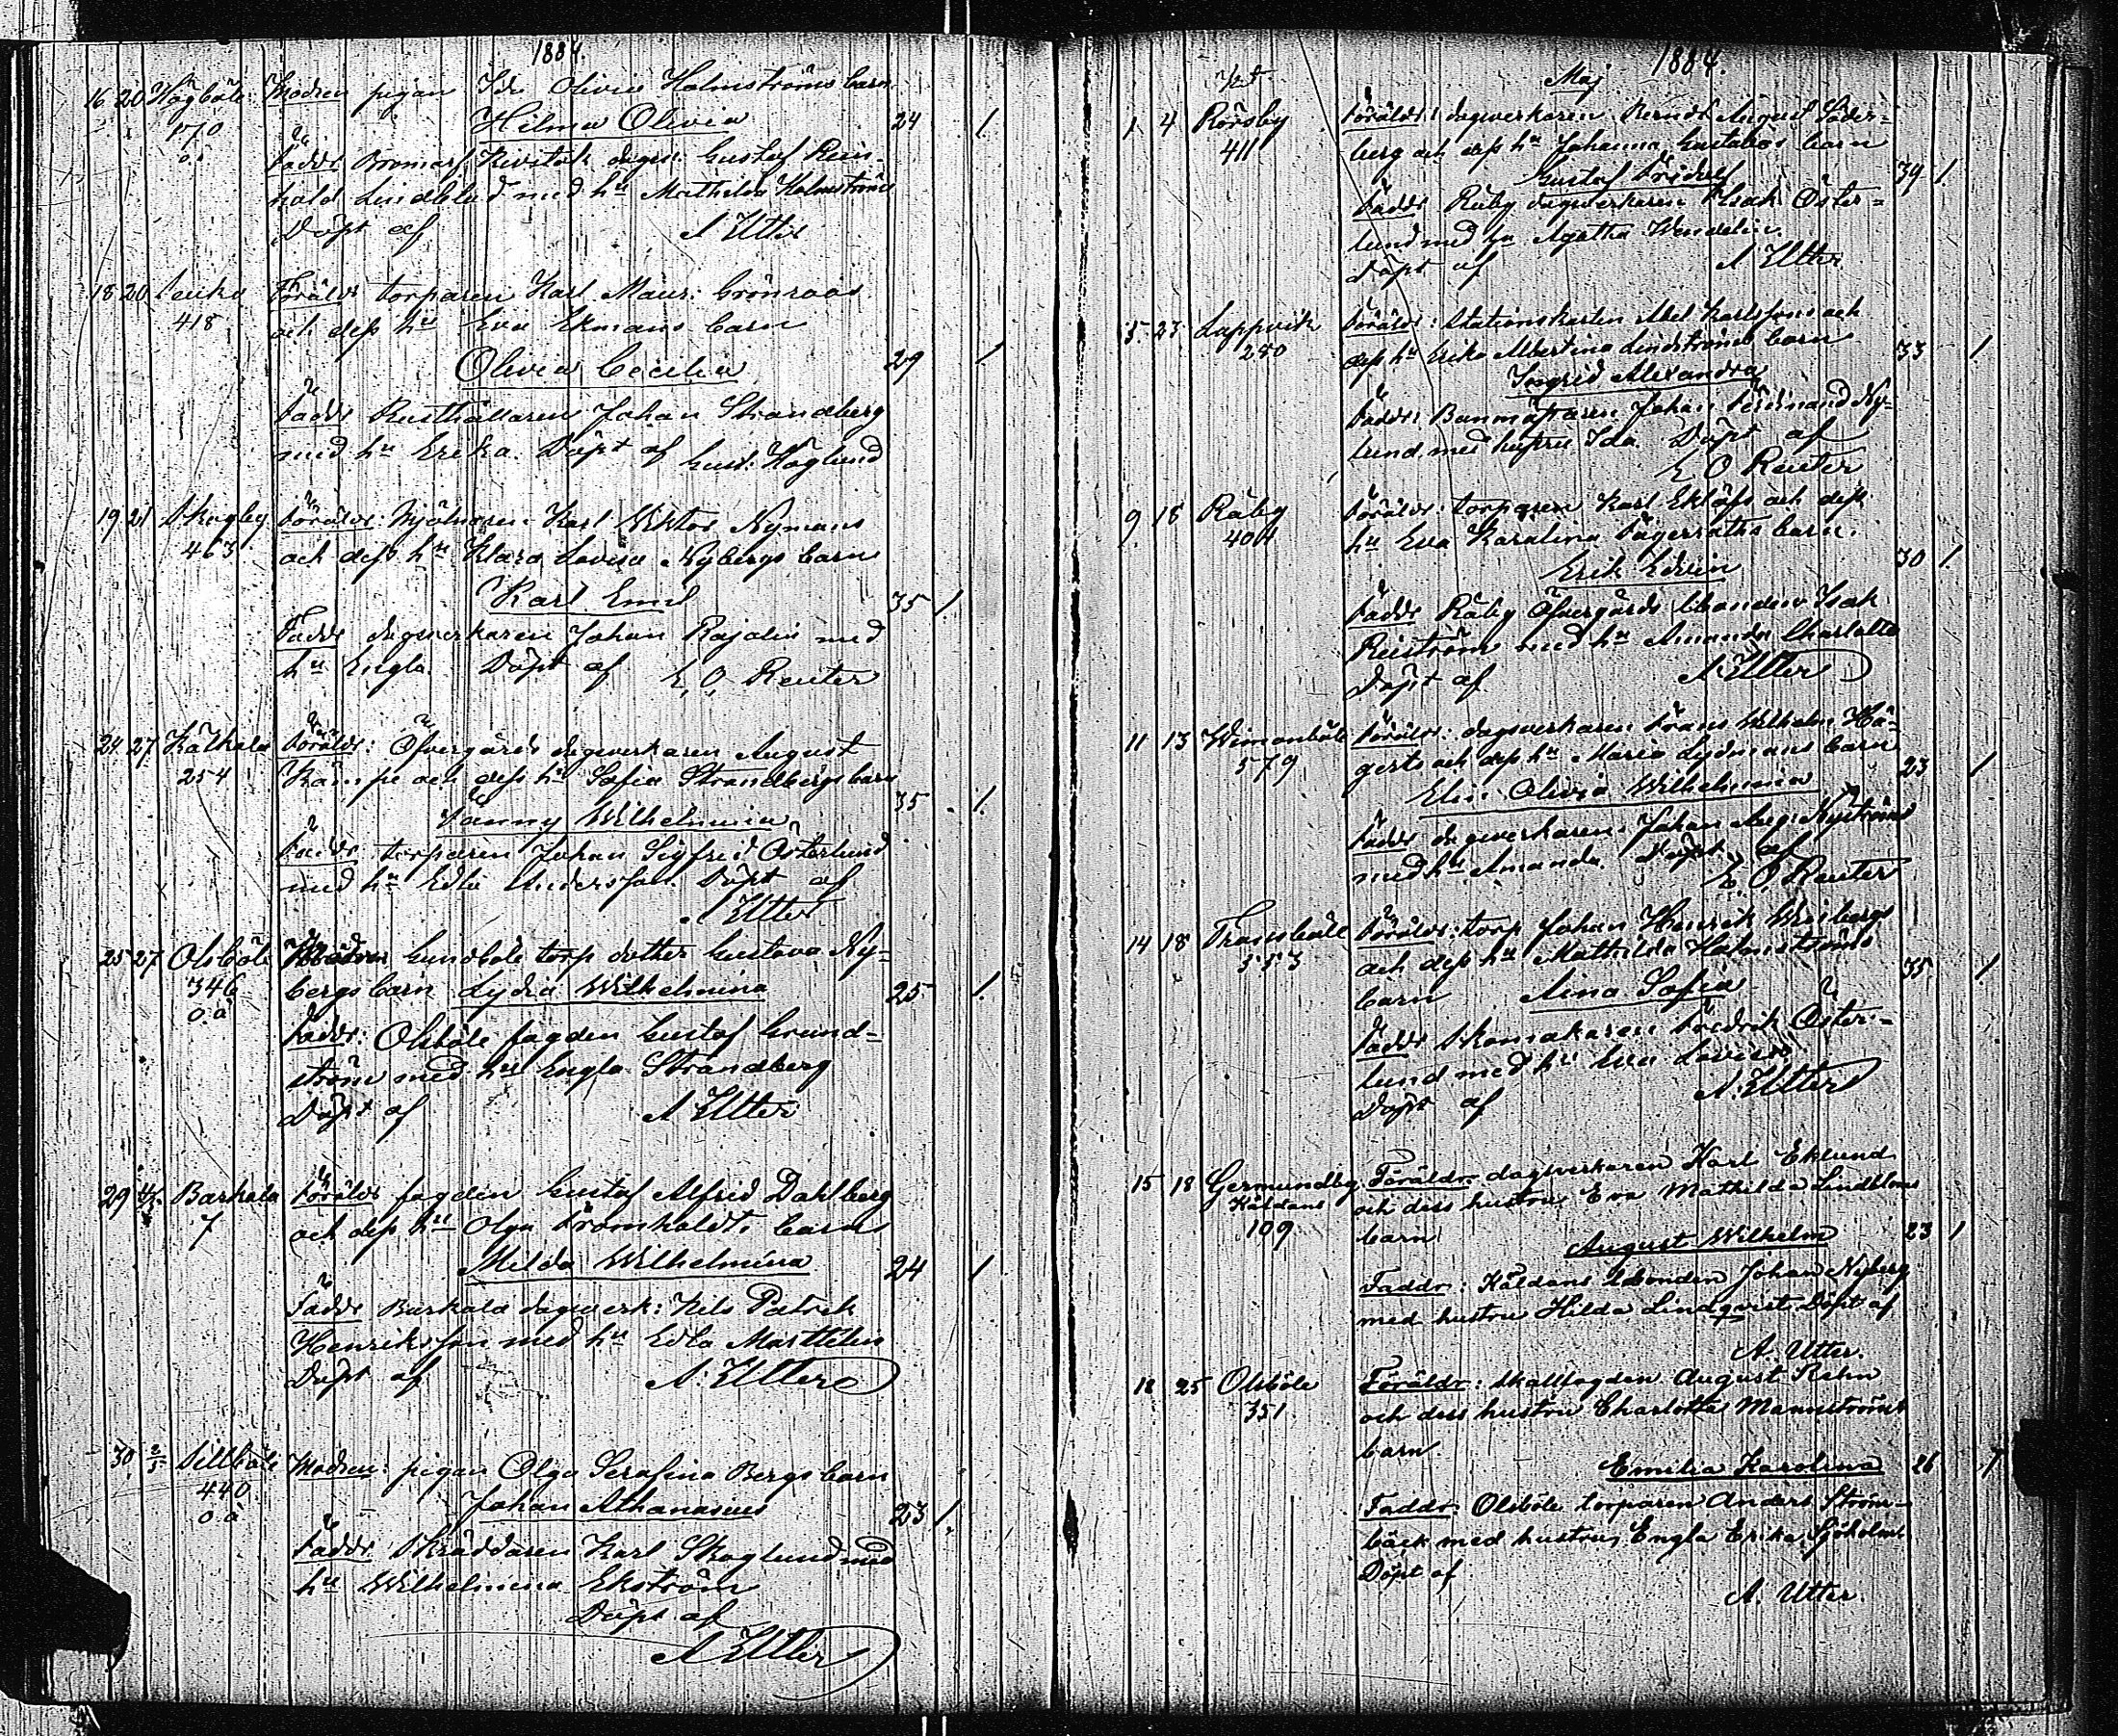 1884.
16 20 Högböle Modren pigan Ida Olivia Holmströms barn
170 Hilma Olivia 24 1.
o.ä. Faddr Bromarf Kivitok dagsv. Gustaf Rein-
hold Lindblad med hu Mathilda Holmström
Döpt af A Utter
18 20 Föräldr torparen Karl Maur: Grönroos
418 och dess hu Eva Ekmans barn
Olivia Cecilia 29 1
Faddr Rusthållaren Johan Strandberg
med hu Erika. Döpt af Gust. Höglund
19 21 Skogby Föräldr: Mjölnaren Karl Viktor Nymans
463 och dess hu Klara Lovisa Nybergs barn
Karl Emil 35 1.
Faddr dagsverkaren Johan Rajalin med
hu Engla. Döpt af E. O. Reuter
24 27 Källkala Föräldr: Öfvergårds dagsverkaren August
254 Kämpe och dess hu Sofia Strandbergs barn
Fanny Wilhelmina 35 1.
Faddr torparen Johan Sigfrid Österlund
med hu Edla Andersson. Döpt af
A Utter
25 27 Olsböle Modren Gundböle torp. dotter Gustava Ny-
346 bergs barn Lydia Wilhelmina 25 1.
o.ä Faddr: Olsböle fogden Gustaf Grund-
ström med hu Engla Strandberg
Döpt af A Utter
29 4/5 Baskala Föräldr fogden Gustaf Alfred Dahlberg
7 och dess hu Olga Fromholdts barn
Milda Wilhelmina 24 1.
Faddr Baskala dagsverk: Nils Patrik
Henriksson med hu Edla Marttelin
Döpt af A. Utter
30 2/5 Sillböle Modren: pigan Olga Serafina Bergs barn
440 Johan Athanasius 23 1.
o ä
Faddr Skräddaren Karl Skoglund med
hu Wilhelmina Ekström
Döpt af
A Utter
1884.
Maj
1 4 Rörsby Föräldr: dagsverkaren Berndt August Söder-
411 berg och dess hu Johanna Gustafvas barn
Gustaf Fridolf 39 1.
Faddr Råby dagsverkaren Isak Öster-
lund med hu Agatha Wendelin.
Döpt af A Utter
5 25 Lappvik Föräldr: Stationskarlen Abel Karlssons och
280 dess hu Erika Albertina Lindströms barn 33 1
Ingrid Alexandra
Faddr: Banmästaren Johan Ferdinand Ny-
lund med hustru Ida. Döpt af
E O Reuter
9 18 Råby Föräldr: torparen Karl Eklöfs och dess
404 hu Eva Karolina Fagerroths barn.
Erik Edvin 30 1.
Faddr Råby Öfvergårds bonden Isak
Reiström med hu Amanda Charlotta
Döpt af A. Utter
11 13 Wimonböle Föräldr: dagsverkaren Frans Wilhelm Hä-
579 gerts och dess hu Maria Lydmans barn
Elin Olivia Wilhelmina 23 1
Faddr dagsverkaren Johan Aug: Nyström
med hu Amanda. Döpt af
E. O. Reuter
14 18 Transböle Föräldr: torp Johan Henrik Weibergs
553 och dess hu Mathilda Holmströms
barn Aina Sofia 35 1
Faddr Skomakaren Fredrik Öster-
lund med hu Eva Lovisa
Döpt af A. Utter
15 18 Germundby Föräldr dagsverkaren Karl Eklund
Käldans och dess hustru Eva Mathilda Lindbloms
109 barn August Wilhelm 23 1
Faddr: Käldans bonden Johan Nyberg
med hustru Hilda Lindqvist Döpt af
A. Utter.
18 25 Olsböle Föräldr: skallfogden August Rehn
351 och dess hustru Charlotta Mannströms
barn
Emilia Karolina 26 1
Faddr: Olsböle torparen Anders Ström-
bäck med hustru Engla Erika Sjöholm.
Döpt af
A. Utter.